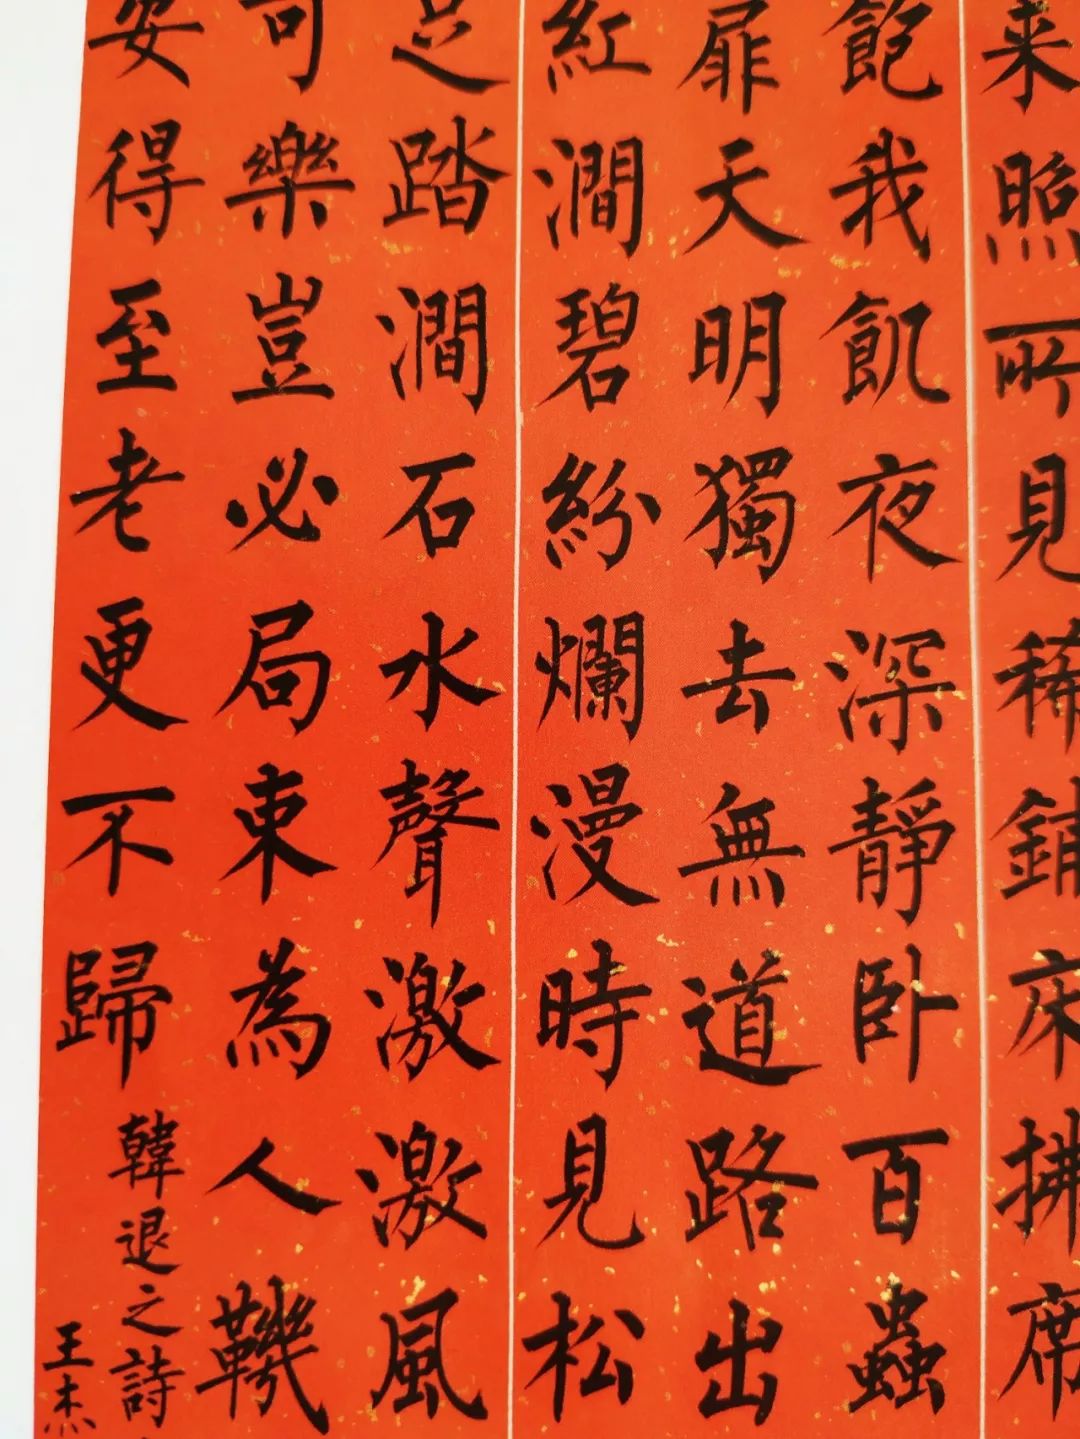 来照所見稀鋪床拂席
飽我飢夜深靜卧百蟲
扉天明獨去無道路出
紅澗碧紛爛漫時見松
足踏澗石水聲激激風
可樂豈必局束為人鞿
安得至老更不歸
韓退之詩
王杰